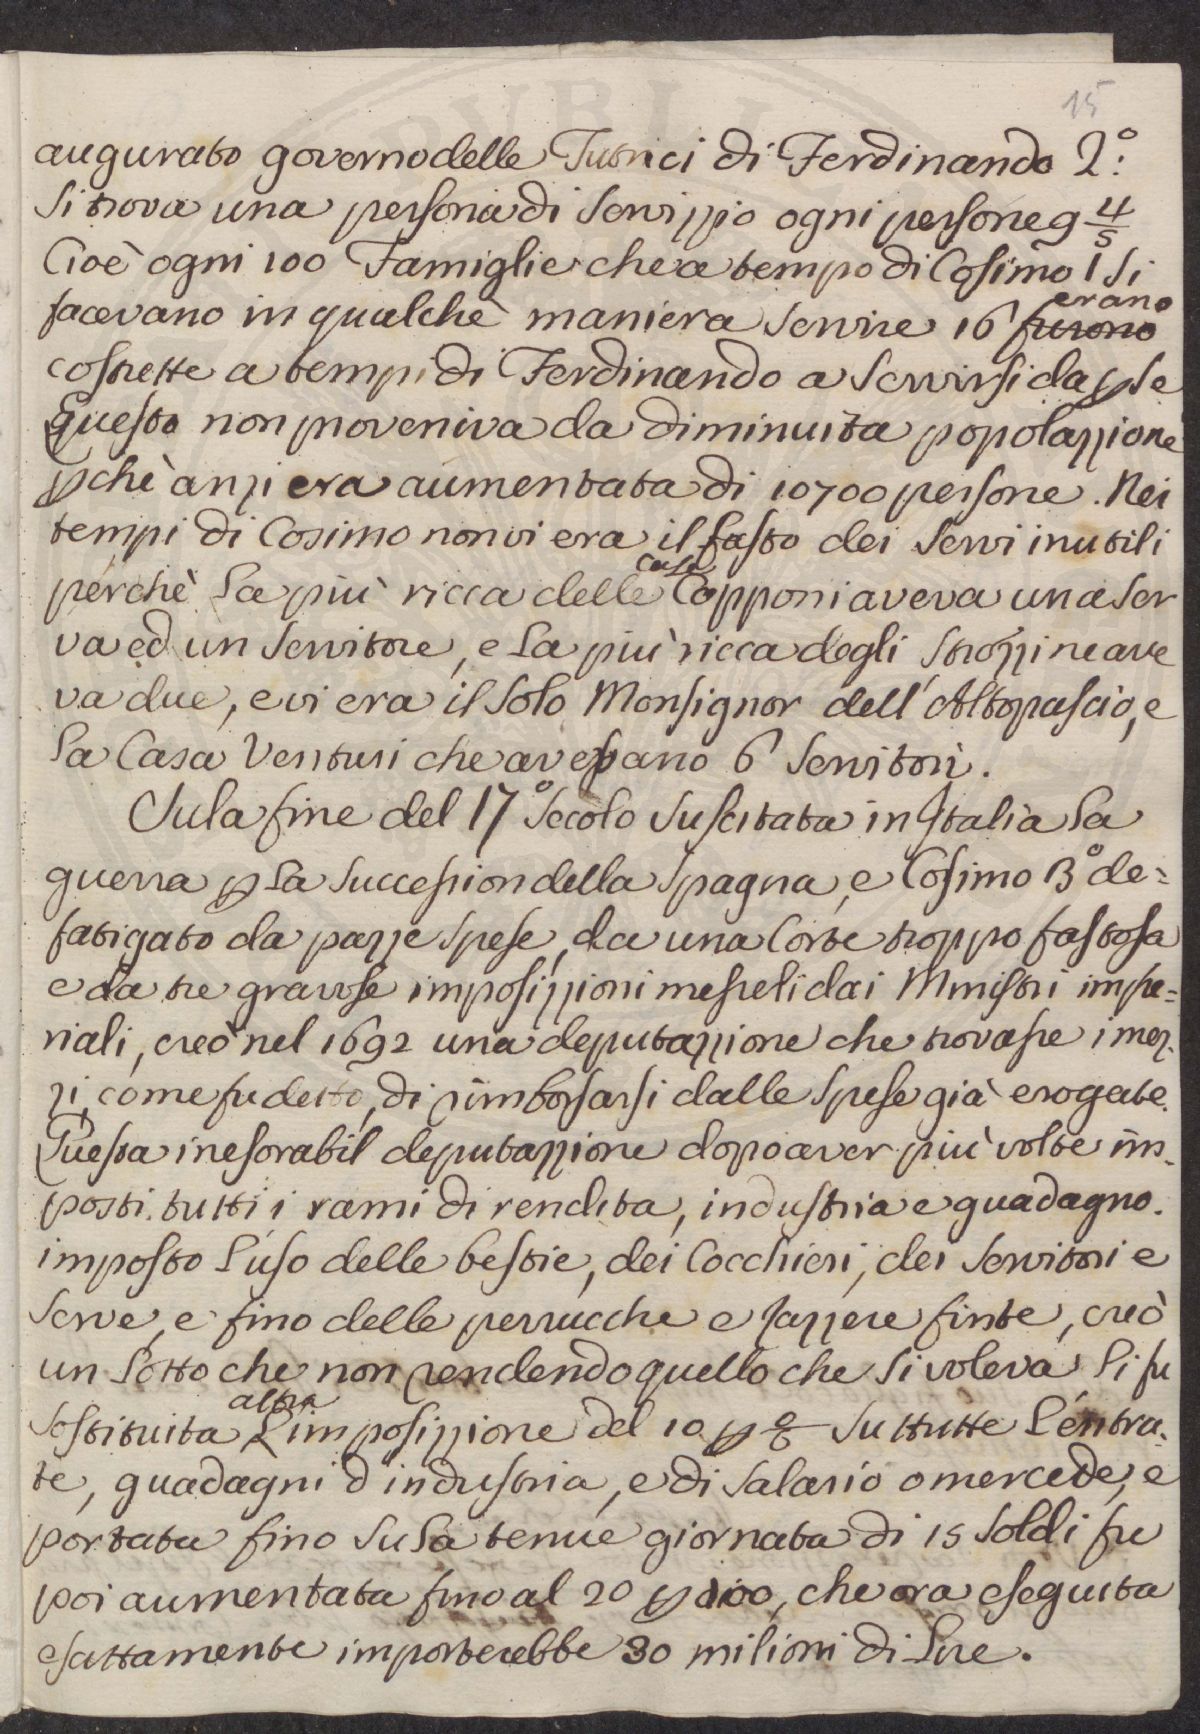 15
augurato governo delle Tutrici di Ferdinando 2.º
si trova una persona di servizzio ogni persone 9 4/5
Cioè ogni 100 Famiglie che a tempo di Cosimo I si
facevano in qualche maniera servire 16 furono erano
costrette a tempi di Ferdinando a servirsi da p se
Questo non proveniva da diminuita popolazzione
pchè anzi era aumentata di 10700 persone. Nei
tempi di Cosimo non vi era il fasto dei servi inutili
perchè la più ricca delle Case Capponi aveva una ser
va ed un servitore, e la più ricca degli Strozzi ne ave
va due, e vi era il solo Monsignor dell'Altopascio, e
la Casa Venturi che avevano 6 servitori.
Sula fine del 17º secolo suscitata in Italia la
guerra p la succession della Spagna, e Cosimo 3º de=
fatigato da pazze spese, da una Corte troppo fastosa
e da tre gravose imposizzioni messeli dai Ministri impe=
riali, creò nel 1692 una deputazzione che trovasse i mez-
zi, come fu detto, di rimborsarsi dalle spese già erogate.
Questa inesorabil deputazzione dopo aver più volte im-
posti tutti i rami di rendita, industria e guadagno.
imposto l'uso delle bestie, dei Cocchieri, dei servitori e
serve, e fino delle perrucche e zazzere finte, creò
un lotto che non rendendo quello che si voleva li fu
sostituita altra l'imposizzione del 10 p % su ttutte l'entra-
te, guadagni d industria, e di salario o mercede, e
portata fino su la tenue giornata di 15 soldi fu
poi aumentata fino al 20 p 100, che ora eseguita
esattamente importerebbe 30 milioni di lire.